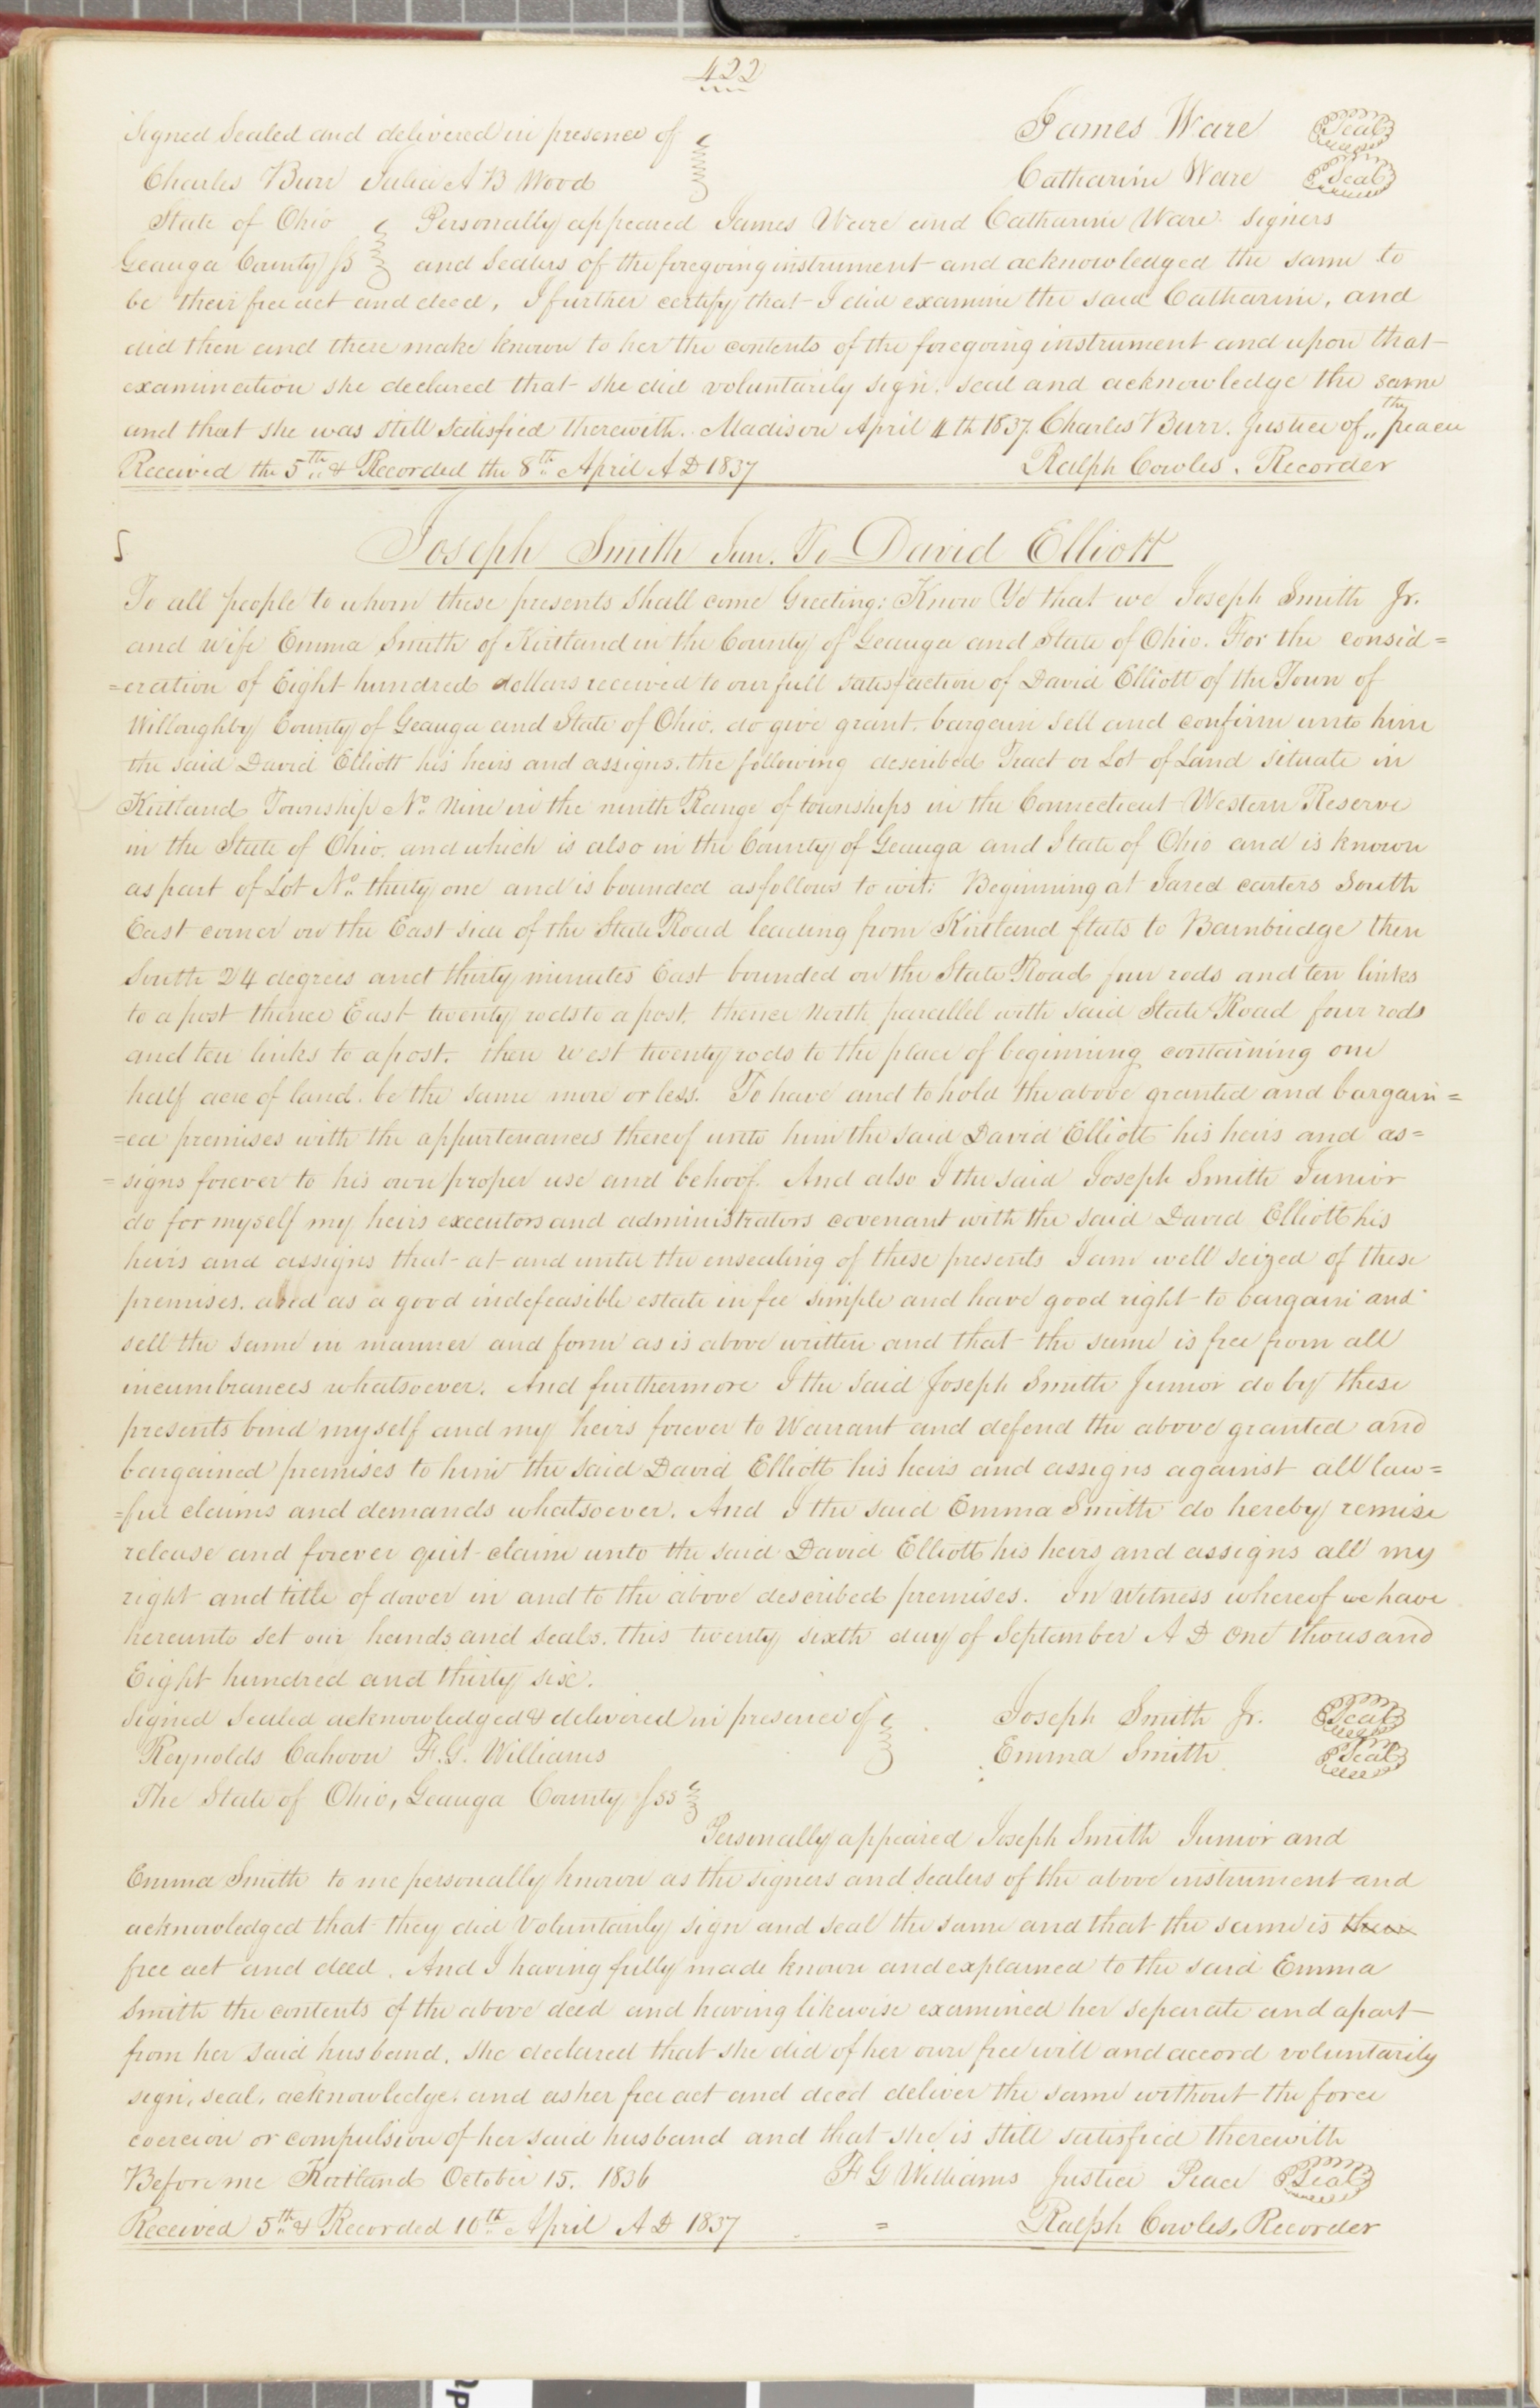 422
Signed Sealed and delivered in presence of James Ware Seal
Charles Burr Julia A B Wood Catharine Ware Seal
State of Ohio Personally appeared James Ware and Catharine Ware signers
Geauga County ss and Sealers of the foregoing instrument and acknowledged the same to
be their free act and deed, I further certify that I did examine the said Catharine, and
did then and there make known to her the contents of the foregoing instrument and upon that
examination she declared that she did voluntarily sign. seal and acknowledge the same
and that she was still satisfied therewith. Madison April 4th 1837. Charles Burr. Justice of the peace
Received the 5th & Recorded the 8th April A D 1837 Ralph Cowles. Recorder
Joseph Smith Jun. To David Elliott
To all people to whom these presents shall come Greeting: Know Ye that we Joseph Smith Jr.
and wife Emma Smith of Kirtland in the County of Geauga and State of Ohio. For the consid=
=eration of Eight hundred dollars received to our full satisfaction of David Elliott of the Town of
Willoughby County of Geauga and State of Ohio. do give grant. bargain sell and confirm unto him
the said David Elliott his heirs and assigns. the following described Tract or Lot of Land situate in
Kirtland Township No. Nine in the ninth Range of townships in the Connecticut Western Reserve
in the State of Ohio. and which is also in the County of Geauga and State of Ohio and is known
as part of Lot No. thirty one and is bounded as follows to wit: Beginning at Jared carters South
East corner on the East side of the State Road leading from Kirtland flats to Bainbridge then
South 24 degrees and thirty minutes East bounded on the State Road four rods and ten links
to a post thence East twenty rods to a post. thence North parallel with said State Road four rods
and ten links to a post. then West twenty rods to the place of beginning containing one
half acre of land. be the same more or less. To have and to hold the above granted and bargain=
=ed premises with the appurtenances thereof unto him the said David Elliott his heirs and as=
=signs forever to his own proper use and behoof. And also I the said Joseph Smith Junior
do for myself my heirs executors and administrators covenant with the said David Elliott his
heirs and assigns that at and until the ensealing of these presents I am well seized of these
premises. and as a good indefeasible estate in fee simple and have good right to bargain and
sell the same in manner and form as is above written and that the same is free from all
incumbrances whatsoever. And furthermore I the said Joseph Smith Junior do by these
presents bind myself and my heirs forever to Warrant and defend the above granted and
bargained premises to him the said David Elliott his heirs and assigns against all law=
=ful claims and demands whatsoever. And I the said Emma Smith do hereby remise
release and forever quit-claim unto the said David Elliott his heirs and assigns all my
right and title of dower in and to the above described premises. In Witness whereof we have
hereunto set our hands and seals. this twenty sixth day of September A D One thousand
Eight hundred and thirty six.
Signed Sealed acknowledged & delivered in presence of Joseph Smith Jr. Seal
Reynolds Cahoon F. G. Williams Emma Smith Seal
The State of Ohio, Geauga County ss
Personally appeared Joseph Smith Junior and
Emma Smith to me personally known as the signers and sealers of the above instrument and
acknowledged that they did Voluntarily sign and seal the same and that the same is their
free act and deed. And I having fully made known and explained to the said Emma
Smith the contents of the above deed and having likewise examined her separate and apart
from her said husband. She declared that she did of her own free will and accord voluntarily
sign, seal, acknowledge. and as her free act and deed deliver the same without the force
coercion or compulsion of her said husband and that she is still satisfied therewith
Before me Kirtland October 15. 1836 F G Williams Justice Peace Seal
Received 5th & Recorded 10th April A D 1837 = Ralph Cowles, Recorder